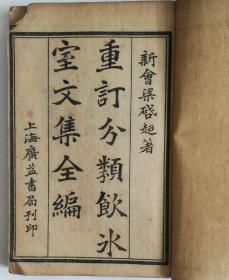 新會梁啓超著
重訂分類飲冰
室文集全編
上海廣益書局刊印